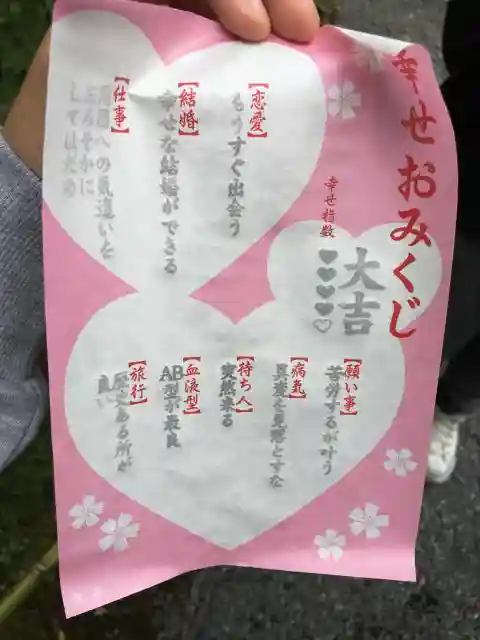 幸せおみくじ
幸せ指数
大吉
【恋愛】
もうすぐ出会う
【結婚】
幸せな結婚ができる
【仕事】
周囲への気遣いを
おろそかに
してはだめ
【願い事】
苦労するが叶う
【病気】
異変を見落とすな
【待ち人】
突然来る
【血液型】
AB型が最良
【旅行】
歴史ある所が
良い